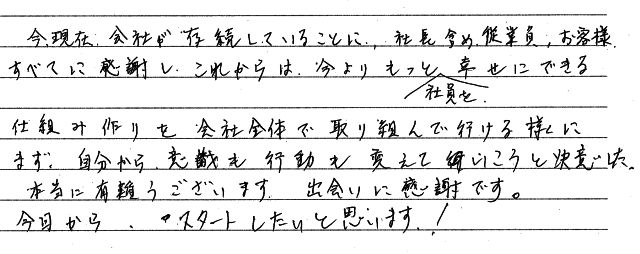 今現在、会社が存続していることに、社長含め従業員、お客様
すべてに感謝し、これからは、今よりもっと幸せにできる
社員を
仕組み作りを会社全体で取り組んで行ける様に
まず、自分から、意識も行動も変えて いこうと決意した。
本当に有難うございます。出会いに感謝です。
今日から、スタートしたいと思います!